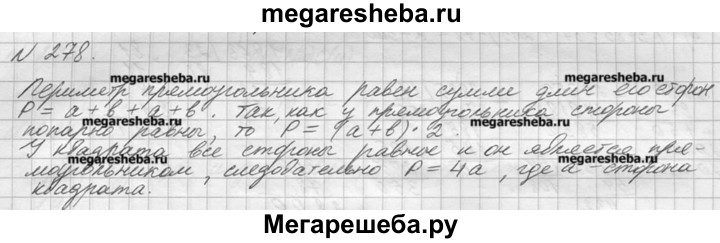 megaresheba.ru
N 278.
megaresheba.ru megaresheba.ru
Периметр прямоугольника равен сумме длин его сторон
P = a + b + a + b. Так, как у прямоугольника стороны
попарно равны, то P = (a+b)·2.
У квадрата все стороны равные и он является пря-
megaresheba.ru megaresheba.ru
моугольником, следовательно P = 4a, где a - сторона
квадрата.
Мегарешеба.ру